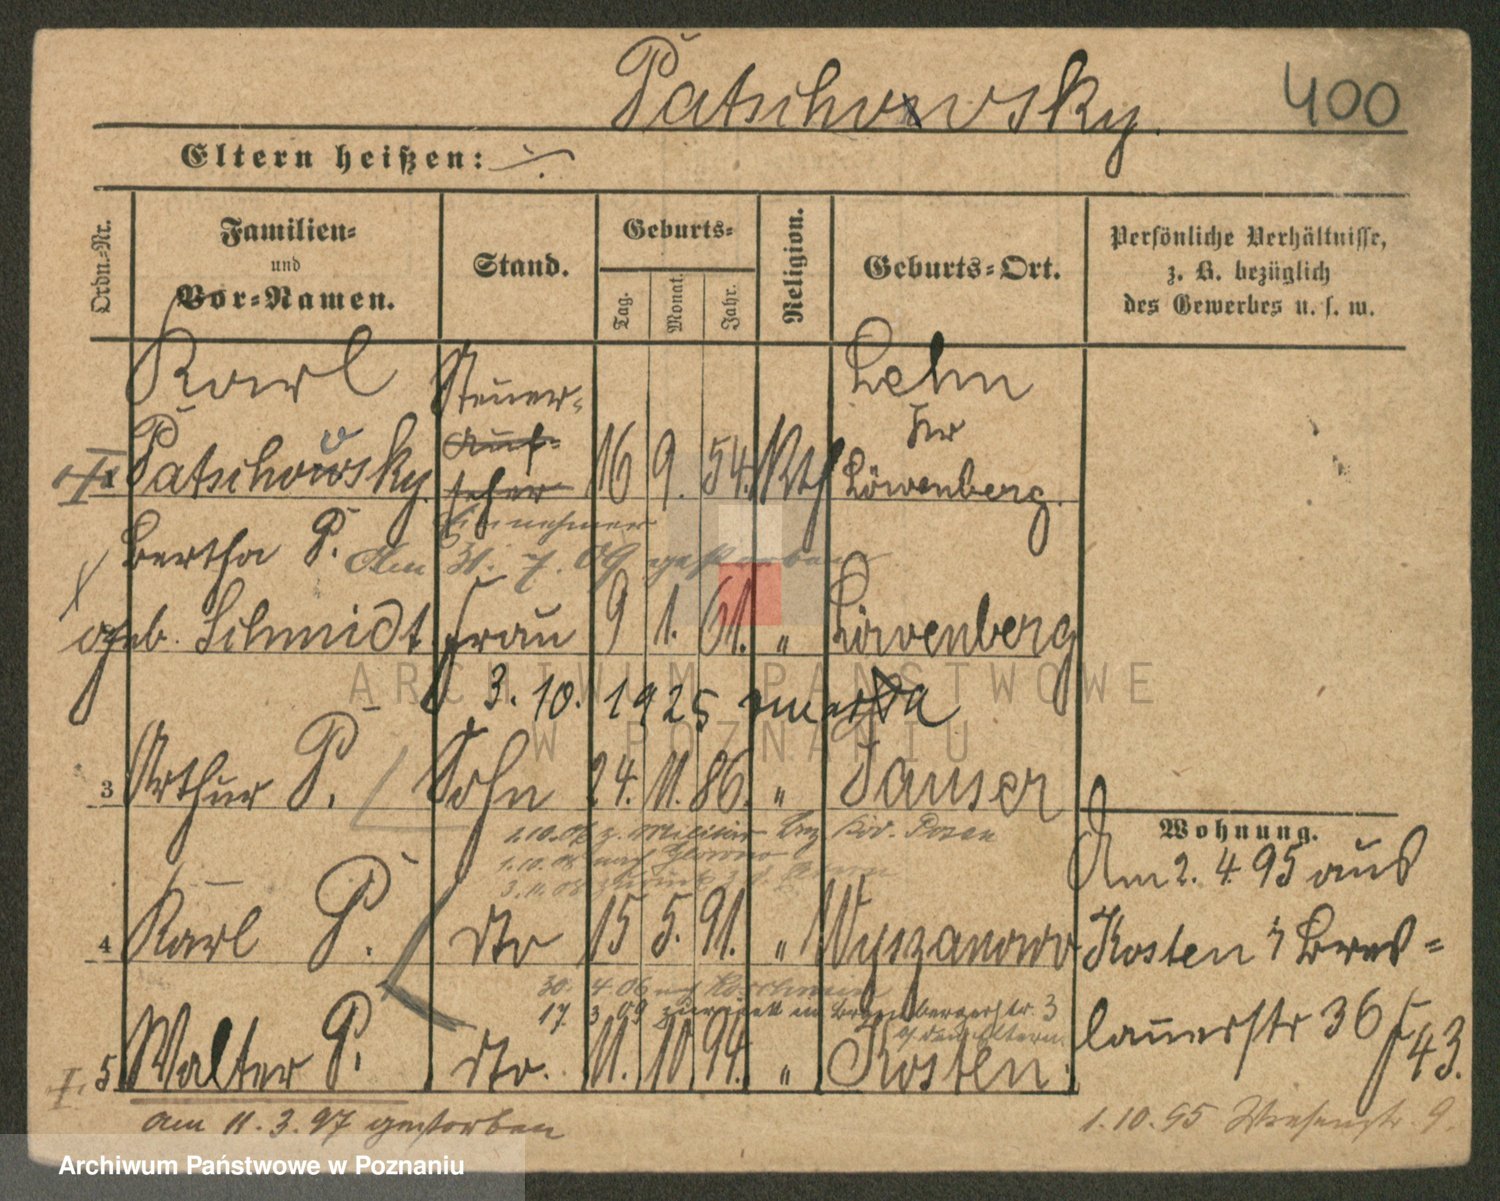 Patschowsky.
400
Eltern heißen:
Ordn.-Nr.
Familien-
und
Vor-Namen.
Stand.
Geburts-
Tag.
Monat.
Jahr.
Religion.
Geburts-Ort.
Persönliche Verhältnisse,
z. B. bezüglich
des Gewerbes u. s. w.
Karl
Patschowsky.
Steuer-
Auf-
seher
Einnehmer
16 9. 54. Kth
Lehn
Löwenberg.
Bertha P.
Am 31. 7. 09 gestorben
geb. Schmidt Frau 9 1. 61. " Löwenberg
3. 10. 1925 zmarła
3 Arthur P. Sohn 24. 11. 86. " Jauer
z. Militär Posen
1. 10. 08 auf
3. 11. 08 zurück
4 Karl P. dto 15 5. 91. " Wyszanowo
30. 4. 06
17. 3. 09 zurück in 3
Eltern.
I. 5 Walter P. dto. 11. 10 94. " Kosten.
am 11. 3. 97 gestorben
Wohnung.
Am 2. 4. 95 aus
Kosten Bres-
lauerstr 36
43.
1. 10. 95 Wiesenstr. 9.
ARCHIWUM PAŃSTWOWE
W POZNANIU
Archiwum Państwowe w Poznaniu